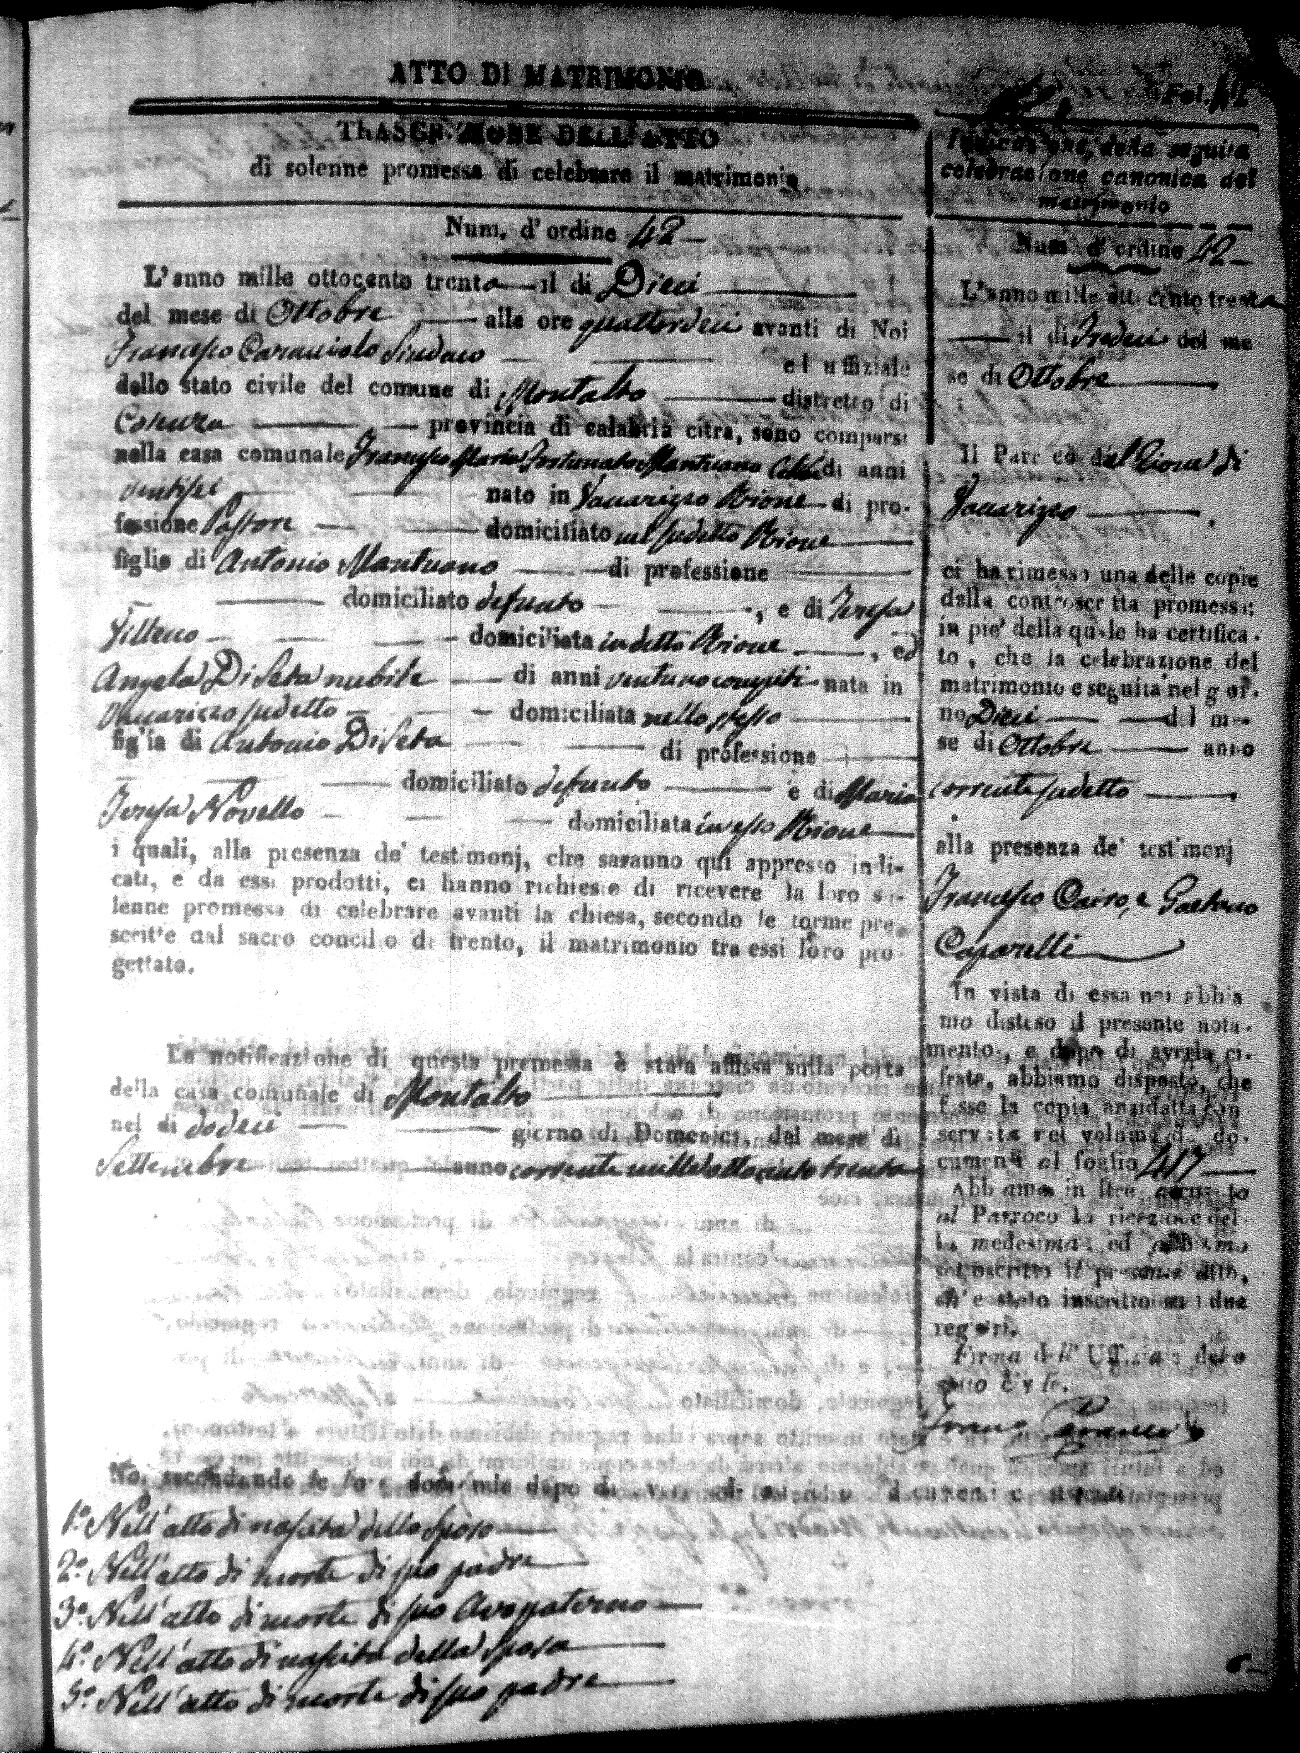 ATTO DI MATRIMONIO
Fol.
TRASCRIZIONE DELL'ATTO
di solenne promessa di celebrare il matrimonio
Num. d'ordine 42
L'anno mille ottocento trenta il di Dieci
del mese di Ottobre alle ore quattordeci avanti di Noi
Francesco Caracciolo Sindaco ed uffiziale
dello stato civile del comune di Montalto distretto di
Cosenza provincia di calabria citra, sono comparsi
nella casa comunale Francesco Maria Fortunato Mantuano di anni
ventisei nato in Vaccarizzo Rione di pro-
fessione Pastore domiciliato nel sudetto Rione
figlio di Antonio Mantuano di professione
domiciliato defunto, e di Teresa
domiciliata in detto Rione, ed
Angela Di Seta nubile di anni ventuno compiti nata in
Vaccarizzo sudetto domiciliata nello stesso
figlia di Antonio Di Seta di professione
domiciliato defunto e di Maria
Teresa Novello domiciliata in esso Rione
i quali, alla presenza de' testimonj, che saranno qui appresso indi-
cati, e da essi prodotti, ci hanno richiesto di ricevere la loro so-
lenne promessa di celebrare avanti la chiesa, secondo le forme pre-
scritte dal sacro concilio di trento, il matrimonio tra essi loro pro-
gettato.
La notificazione di questa premessa è stata affissa sulla porta
della casa comunale di Montalto
nel di dodeci giorno di Domenica, del mese di
Settembre anno corrente mille ottocento trenta
Noi secondando le loro domande dopo di
1.º Nell'atto di nascita dello sposo
2.º Nell'atto di morte di suo padre
3.º Nell'atto di morte di suo Avo paterno
4.º Nell'atto di nascita della sposa
5.º Nell'atto di morte di suo padre
Indicazione della seguita
celebrazione canonica del
matrimonio
Num. d'ordine 42
L'anno mille otto cento trenta
il di Tredeci del me
se di Ottobre
Il Parroco di
Vaccarizzo
ci ha rimesso una delle copie
della controscritta promessa;
in pie' della quale ha certifica-
to, che la celebrazione del
matrimonio e seguita nel gior-
no Dieci del me-
se di Ottobre anno
corrente sudetto
alla presenza de' testimonj
Francesco Cairo, e Gaetano
Caparelli
In vista di essa noi abbia
mo disteso il presente nota-
mento, e dopo di averla ci-
frata, abbiamo disposto, che
fosse la copia anzidetta con
servata nel volume de' do-
cumenti al foglio 417
Abbiamo in oltre accusato
al Parroco la ricezione del
la medesima; ed abbiamo
sottoscritto il presente atto,
ch'e stato inscritto su i due
registri.
Firma dell' Uffiziale dello
stato Civile.